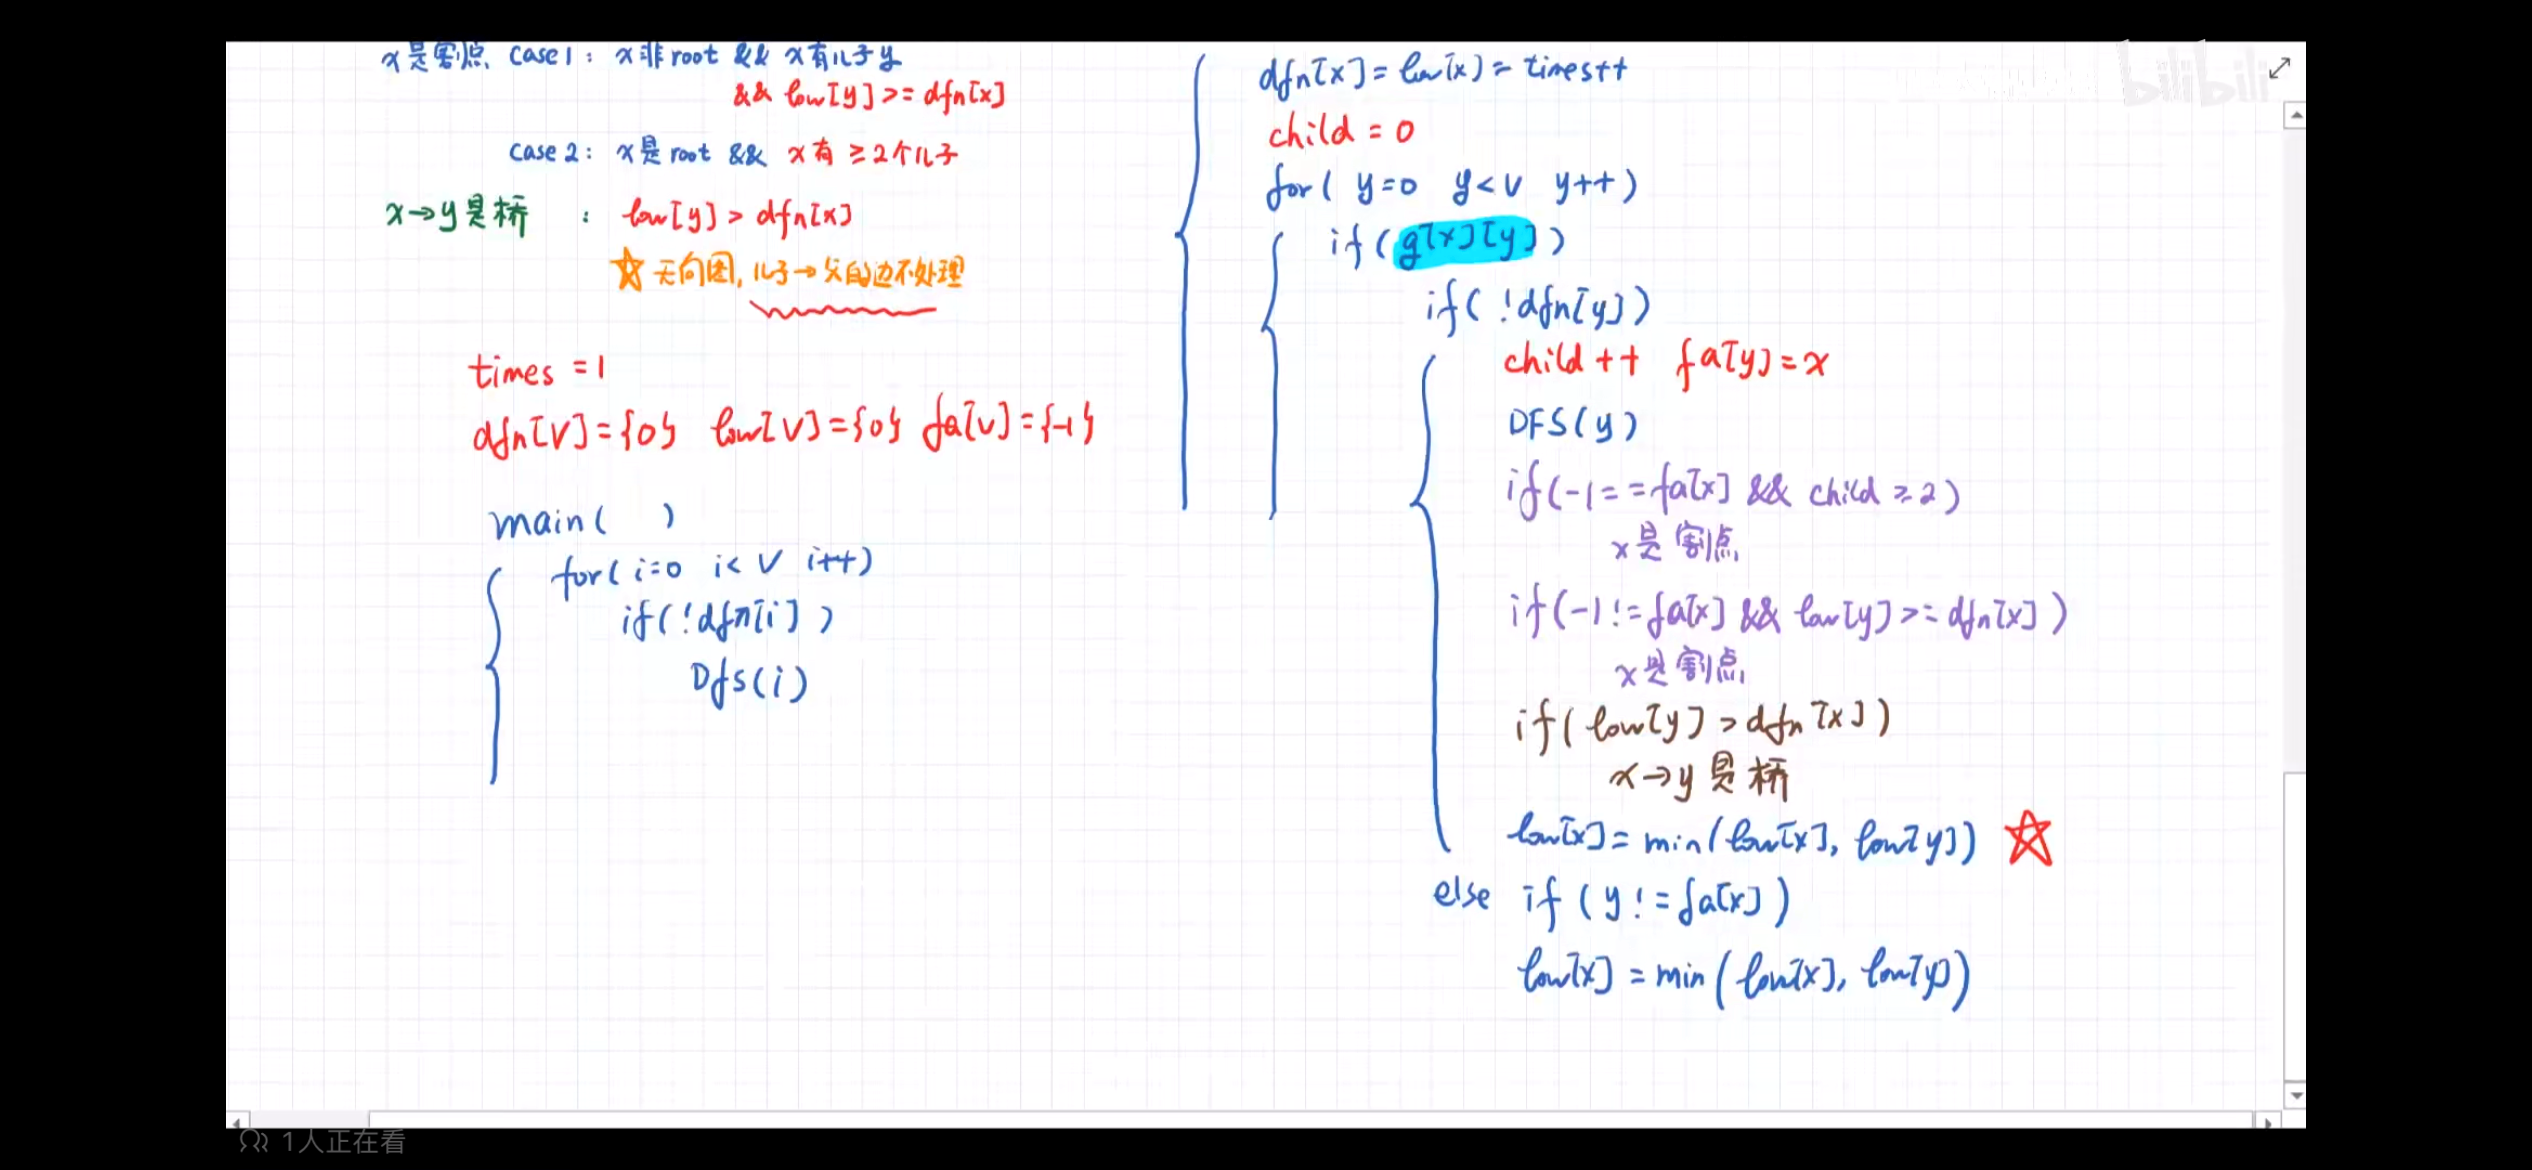 x是割点 case1: x非root && x有儿子y
&& low[y]>=dfn[x]
case 2: x是root && x有≥2个儿子
x→y是桥 : low[y]>dfn[x]
☆无向图,儿子→父的边不处理
times =1
dfn[V]={0} low[V]={0} fa[v]={-1}
main( )
for(i=0 i<V i++)
if(!dfn[i])
Dfs(i)
dfn[x]=low[x]=times++
child = 0
for( y=0 y<V y++)
if(g[x][y])
if(!dfn[y])
child++ fa[y]=x
DFS(y)
if(-1==fa[x] && child≥2)
x是割点
if(-1!=fa[x] && low[y]>=dfn[x])
x是割点
if(low[y]>dfn[x])
x→y是桥
low[x]=min(low[x], low[y]) ☆
else if (y!=fa[x])
low[x]=min(low[x], low[y])
bilibili
1人正在看